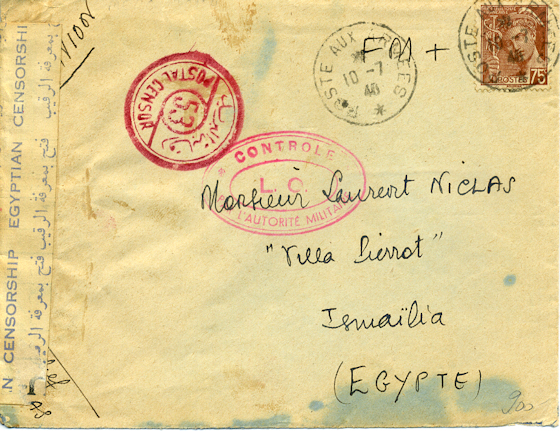 AVION
FM +
POSTE AUX ARMEES
10-7
40
75
POSTES
POSTAL CENSOR
53
CONTROLE
L. O.
L'AUTORITÉ MILITAIRE
Monsieur Laurent NICLAS
"Villa Pierrot"
Ismaïlia
(EGYPTE)
900
N CENSORSHIP EGYPTIAN CENSORSHI
فتح بمعرفة الرقيب فتح بمعرفة الرقيب